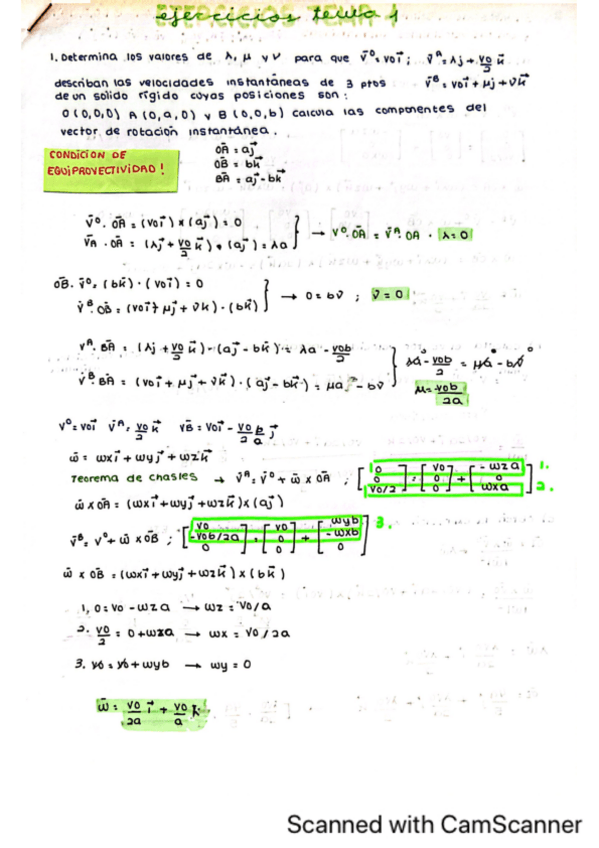 ejercicios tema 4
1. Determina los valores de λ, μ y ν para que v̄⁰ = v₀ī ; v̄ᴬ = λj + v₀/2 k̄
describan las velocidades instantáneas de 3 ptos v̄ᴮ = v₀ī + μj + νk̄
de un solido rígido cuyas posiciones son:
O(0,0,0) A(0,a,0) y B(0,0,b) calcula las componentes del
vector de rotación instantánea.
CONDICIÓN DE
EQUIPROYECTIVIDAD!
OA = aj
OB = bk
BA = aj - bk
v̄⁰·OA = (v₀ī)×(aj) = 0
v̄ᴬ·OA = (λj + v₀/2 k̄)·(aj) = λa
→ v⁰·OA = v̄ᴬ·OA · λ=0
OB·v̄⁰ = (bk)·(v₀ī) = 0
v̄ᴮ·OB = (v₀ī + μj + νk)·(bk)
→ 0 = bν ; ν = 0
vᴬ·BA = (λj + v₀/2 k)·(aj - bk) = λa - v₀b/2
v̄ᴮ·BA = (v₀ī + μj + νk)·(aj - bk) = μa - bν
λa⁰ - v₀b/2 = μa - bν⁰
μ = -v₀b/2a
v⁰ = v₀ī v̄ᴬ = v₀/2 k v̄ᴮ = v₀ī - v₀/2 b/a j
ω̄ = ωxī + ωyj + ωzk
Teorema de chasles → v̄ᴬ = v̄⁰ + ω̄ × OA ; [0 0 v₀/2] = [v₀ 0 0] + [-ωza 0 ωxa] 1. 2.
ω̄ × OA = (ωxī + ωyj + ωzk)×(aj)
v̄ᴮ = v⁰ + ω̄ × OB ; [v₀ -v₀b/2a 0] = [v₀ 0 0] + [ωyb -ωxb 0] 3.
ω̄ × OB = (ωxī + ωyj + ωzk)×(bk)
1, 0 = v₀ - ωza → ωz = v₀/a
2. v₀/2 = 0 + ωxa → ωx = v₀/2a
3. v₀ = v₀ + ωyb → ωy = 0
ω̄ = v₀/2a ī + v₀/a k
Scanned with CamScanner